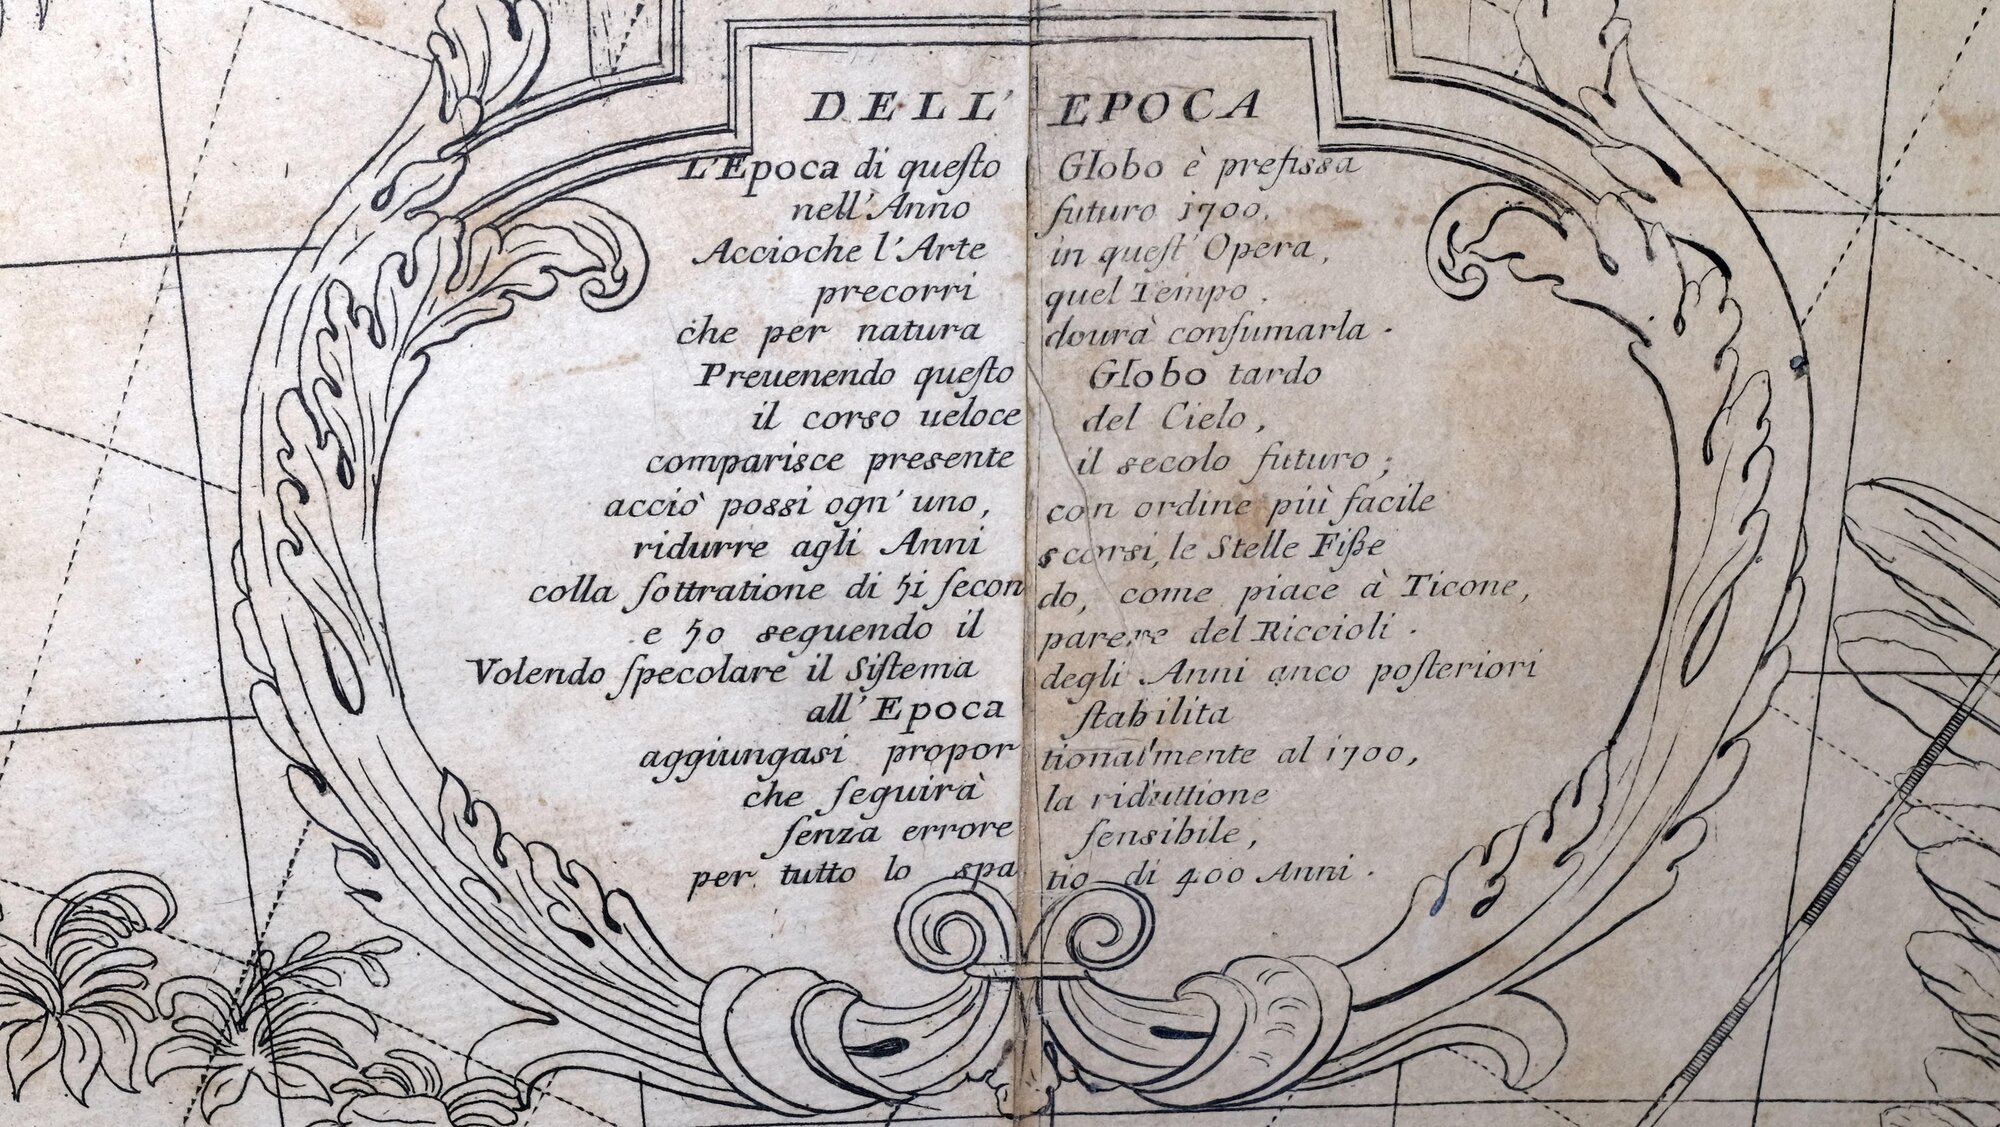 DELL' EPOCA
L'Epoca di queſto Globo è prefissa
nell'Anno futuro 1700.
Accioche l'Arte in queſt' Opera,
precorri quel Tempo.
che per natura dourà conſumarla.
Preuenendo queſto Globo tardo
il corso ueloce del Cielo,
comparisce presente il secolo futuro;
acciò possi ogn' uno, con ordine più facile
ridurre agli Anni scorsi, le Stelle Fiße
colla ſottratione di 51 ſecondo, come piace à Ticone,
e 50 seguendo il parere del Riccioli.
Volendo ſpecolare il Siſtema degli Anni anco poſteriori
all'Epoca ſtabilita
aggiungasi proportionalmente al 1700,
che ſeguirà la riduttione
ſenza errore ſensibile,
per tutto lo spatio di 400 Anni.